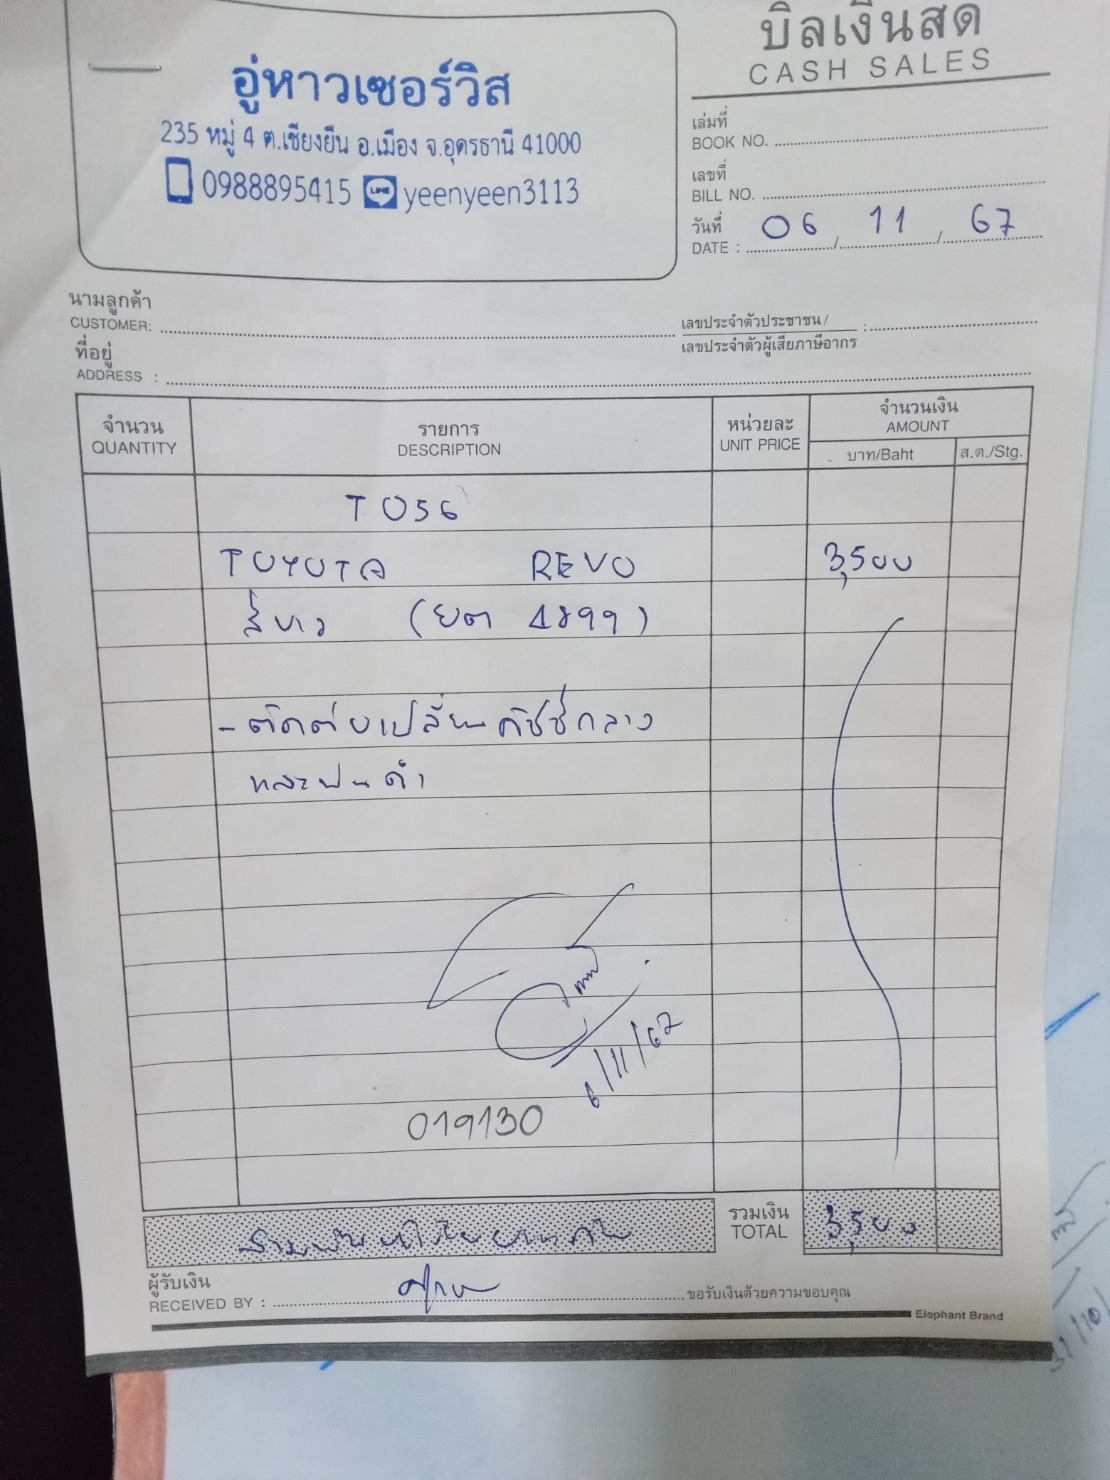 บิลเงินสด
CASH SALES
อู่หาวเซอร์วิส
235 หมู่ 4 ต.เชียงยืน อ.เมือง จ.อุดรธานี 41000
0988895415 LINE yeenyeen3113
เล่มที่
BOOK NO.
เลขที่
BILL NO.
วันที่
DATE : 06 / 11 / 67
นามลูกค้า
CUSTOMER:
เลขประจำตัวประชาชน/ :
เลขประจำตัวผู้เสียภาษีอากร
ที่อยู่
ADDRESS :
จำนวน รายการ หน่วยละ จำนวนเงิน
QUANTITY DESCRIPTION UNIT PRICE AMOUNT
บาท/Baht ส.ต./Stg.
T056
TOYOTA REVO 3,500
สีขาว (ยต 4899)
- ตัดต่อเปลี่ยนคัชซีกลาง
และพ่นดำ
6/11/67
019130
สามพันห้าร้อยบาทถ้วน
รวมเงิน
TOTAL 3,500
ผู้รับเงิน
RECEIVED BY : ขอรับเงินด้วยความขอบคุณ
Elephant Brand
31/10/